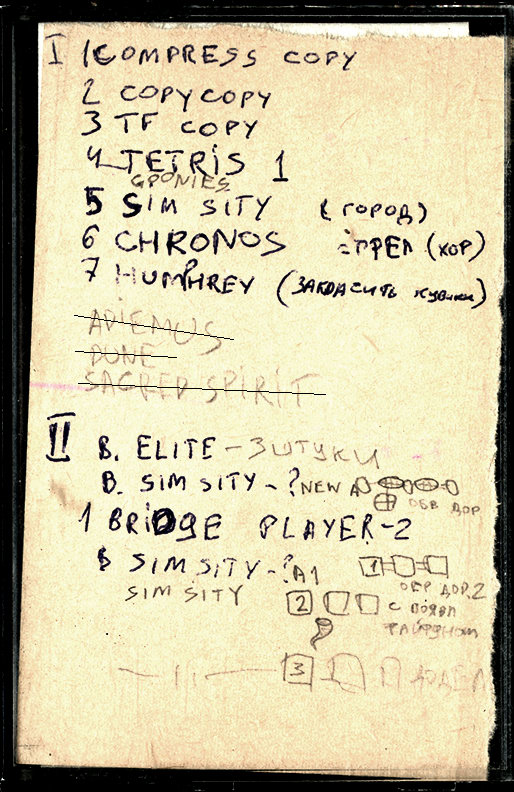 I 1 COMPRESS COPY
2 COPYCOPY
3 TF COPY
4 TETRIS 1
GPONIES
5 SIM SITY (ГОРОД)
6 CHRONOS (ХОР)
7 HUMPHREY (ЗАКРАСИТЬ КУБИКИ)
ADIEMUS
DUNE
SACRED SPIRIT
II B. ELITE - 3 ШТУКИ
B. SIM SITY - ? NEW A
ОБР ДОР
1 BRIDGE PLAYER-2
SIM SITY - ? A1 1
ОБР ДОР.2
SIM SITY 2 С
3